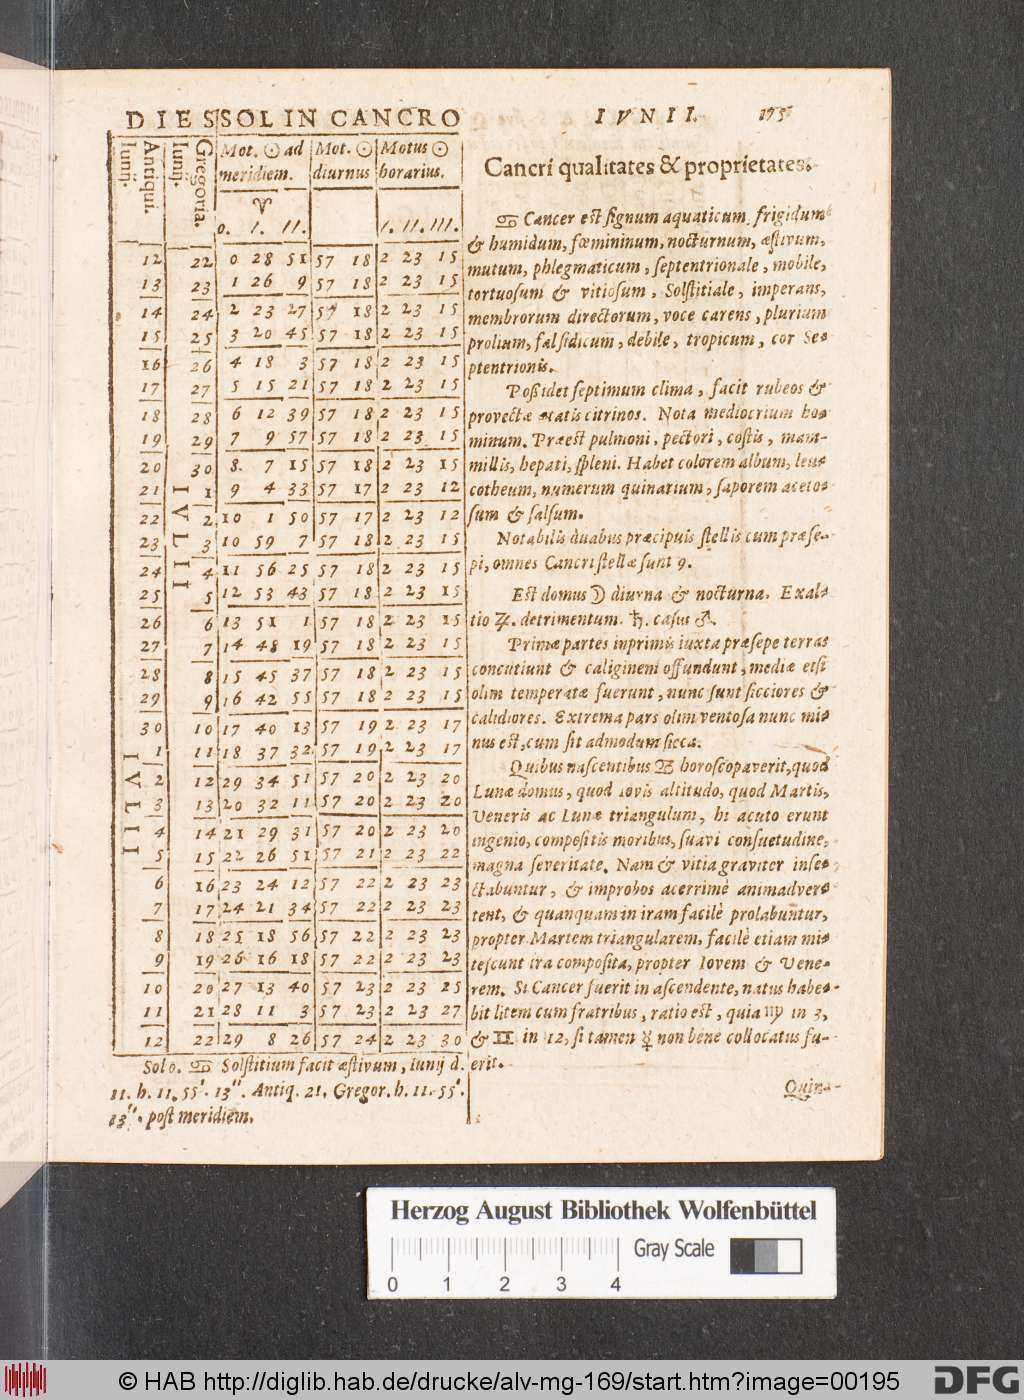 DIES SOL IN CANCRO IVNII. 195
Antiqui. Iunij. Gregoria. Iunij. Mot. ☉ ad meridiem. Mot. ☉ diurnus Motus ☉ horarius.
♈
0. I. II. I. II. III.
12 22 0 28 51 57 18 2 23 15
13 23 1 26 9 57 18 2 23 15
14 24 2 23 27 57 18 2 23 15
15 25 3 20 45 57 18 2 23 15
16 26 4 18 3 57 18 2 23 15
17 27 5 15 21 57 18 2 23 15
18 28 6 12 39 57 18 2 23 15
19 29 7 9 57 57 18 2 23 15
20 30 8. 7 15 57 18 2 23 15
IVLII
21 1 9 4 33 57 17 2 23 12
22 2 10 1 50 57 17 2 23 12
23 3 10 59 7 57 18 2 23 15
24 4 11 56 25 57 18 2 23 15
25 5 12 53 43 57 18 2 23 15
26 6 13 51 1 57 18 2 23 15
27 7 14 48 19 57 18 2 23 15
28 8 15 45 37 57 18 2 23 15
29 9 16 42 55 57 18 2 23 15
30 10 17 40 13 57 19 2 23 17
IVLII
1 11 18 37 32 57 19 2 23 17
2 12 29 34 51 57 20 2 23 20
3 13 20 32 11 57 20 2 23 20
4 14 21 29 31 57 20 2 23 20
5 15 22 26 51 57 21 2 23 22
6 16 23 24 12 57 22 2 23 23
7 17 24 21 34 57 22 2 23 23
8 18 25 18 56 57 22 2 23 23
9 19 26 16 18 57 22 2 23 23
10 20 27 13 40 57 23 2 23 25
11 21 28 11 3 57 23 2 23 27
12 22 29 8 26 57 24 2 23 30
Sol 0. ♋ Solstitium facit æstivum, iunij d.
11. h. 11. 55'. 13''. Antiq. 21. Gregor. h. 11. 55'.
13''. post meridiem.
Cancri qualitates & proprietates.
♋ Cancer est signum aquaticum, frigidum
& humidum, fœmininum, nocturnum, æstivum,
mutum, phlegmaticum, septentrionale, mobile,
tortuosum & vitiosum, Solstitiale, imperans,
membrorum directorum, voce carens, plurium
prolium, falsidicum, debile, tropicum, cor Se-
ptentrionis.
Possidet septimum clima, facit rubeos &
provectæ ætatis citrinos. Nota mediocrium ho-
minum. Præest pulmoni, pectori, costis, mam-
millis, hepati, spleni. Habet colorem album, leu-
cotheum, numerum quinarium, saporem aceto-
sum & salsum.
Notabilis duabus præcipuis stellis cum præse-
pi, omnes Cancri stellæ sunt 9.
Est domus ☽ diurna & nocturna. Exal-
tio ♃. detrimentum ♄. casus ♂.
Primæ partes inprimis iuxta præsepe terras
concutiunt & caliginem offundunt, mediæ etsi
olim temperatæ fuerunt, nunc sunt sicciores &
calidiores. Extrema pars olim ventosa nunc mi-
nus est, cum sit admodum sicca.
Quibus nascentibus ♋ horoscopaverit, quod
Lunæ domus, quod Iovis altitudo, quod Martis,
Veneris ac Lunæ triangulum, hi acuto erunt
ingenio, compositis moribus, suavi consuetudine,
magna severitate. Nam & vitia graviter inse-
ctabuntur, & improbos acerrimè animadver-
tent, & quanquam in iram facilè prolabuntur,
propter Martem triangularem, facilè etiam mi-
tescunt ira composita, propter Iovem & Vene-
rem. Si Cancer fuerit in ascendente, natus habe-
bit litem cum fratribus, ratio est, quia ♍ in 3,
& ♊ in 12, si tamen ☿ non bene collocatus fu-
erit.
Quin-
Herzog August Bibliothek Wolfenbüttel
Gray Scale
0 1 2 3 4
© HAB http://diglib.hab.de/drucke/alv-mg-169/start.htm?image=00195
DFG